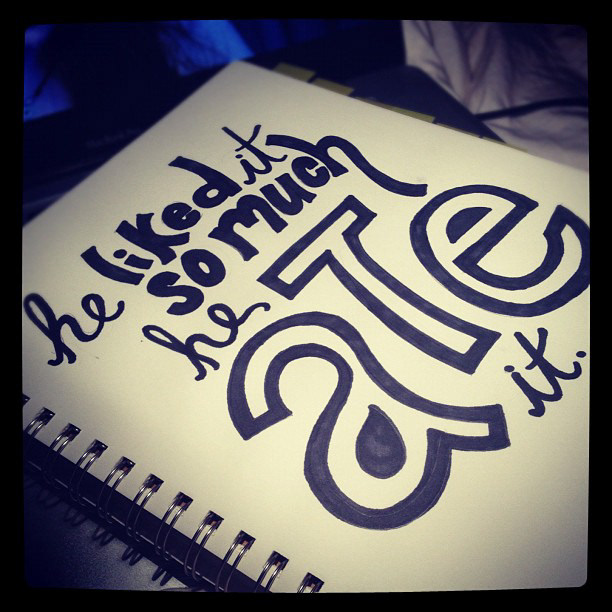 he liked it
so much
he aTe
it.